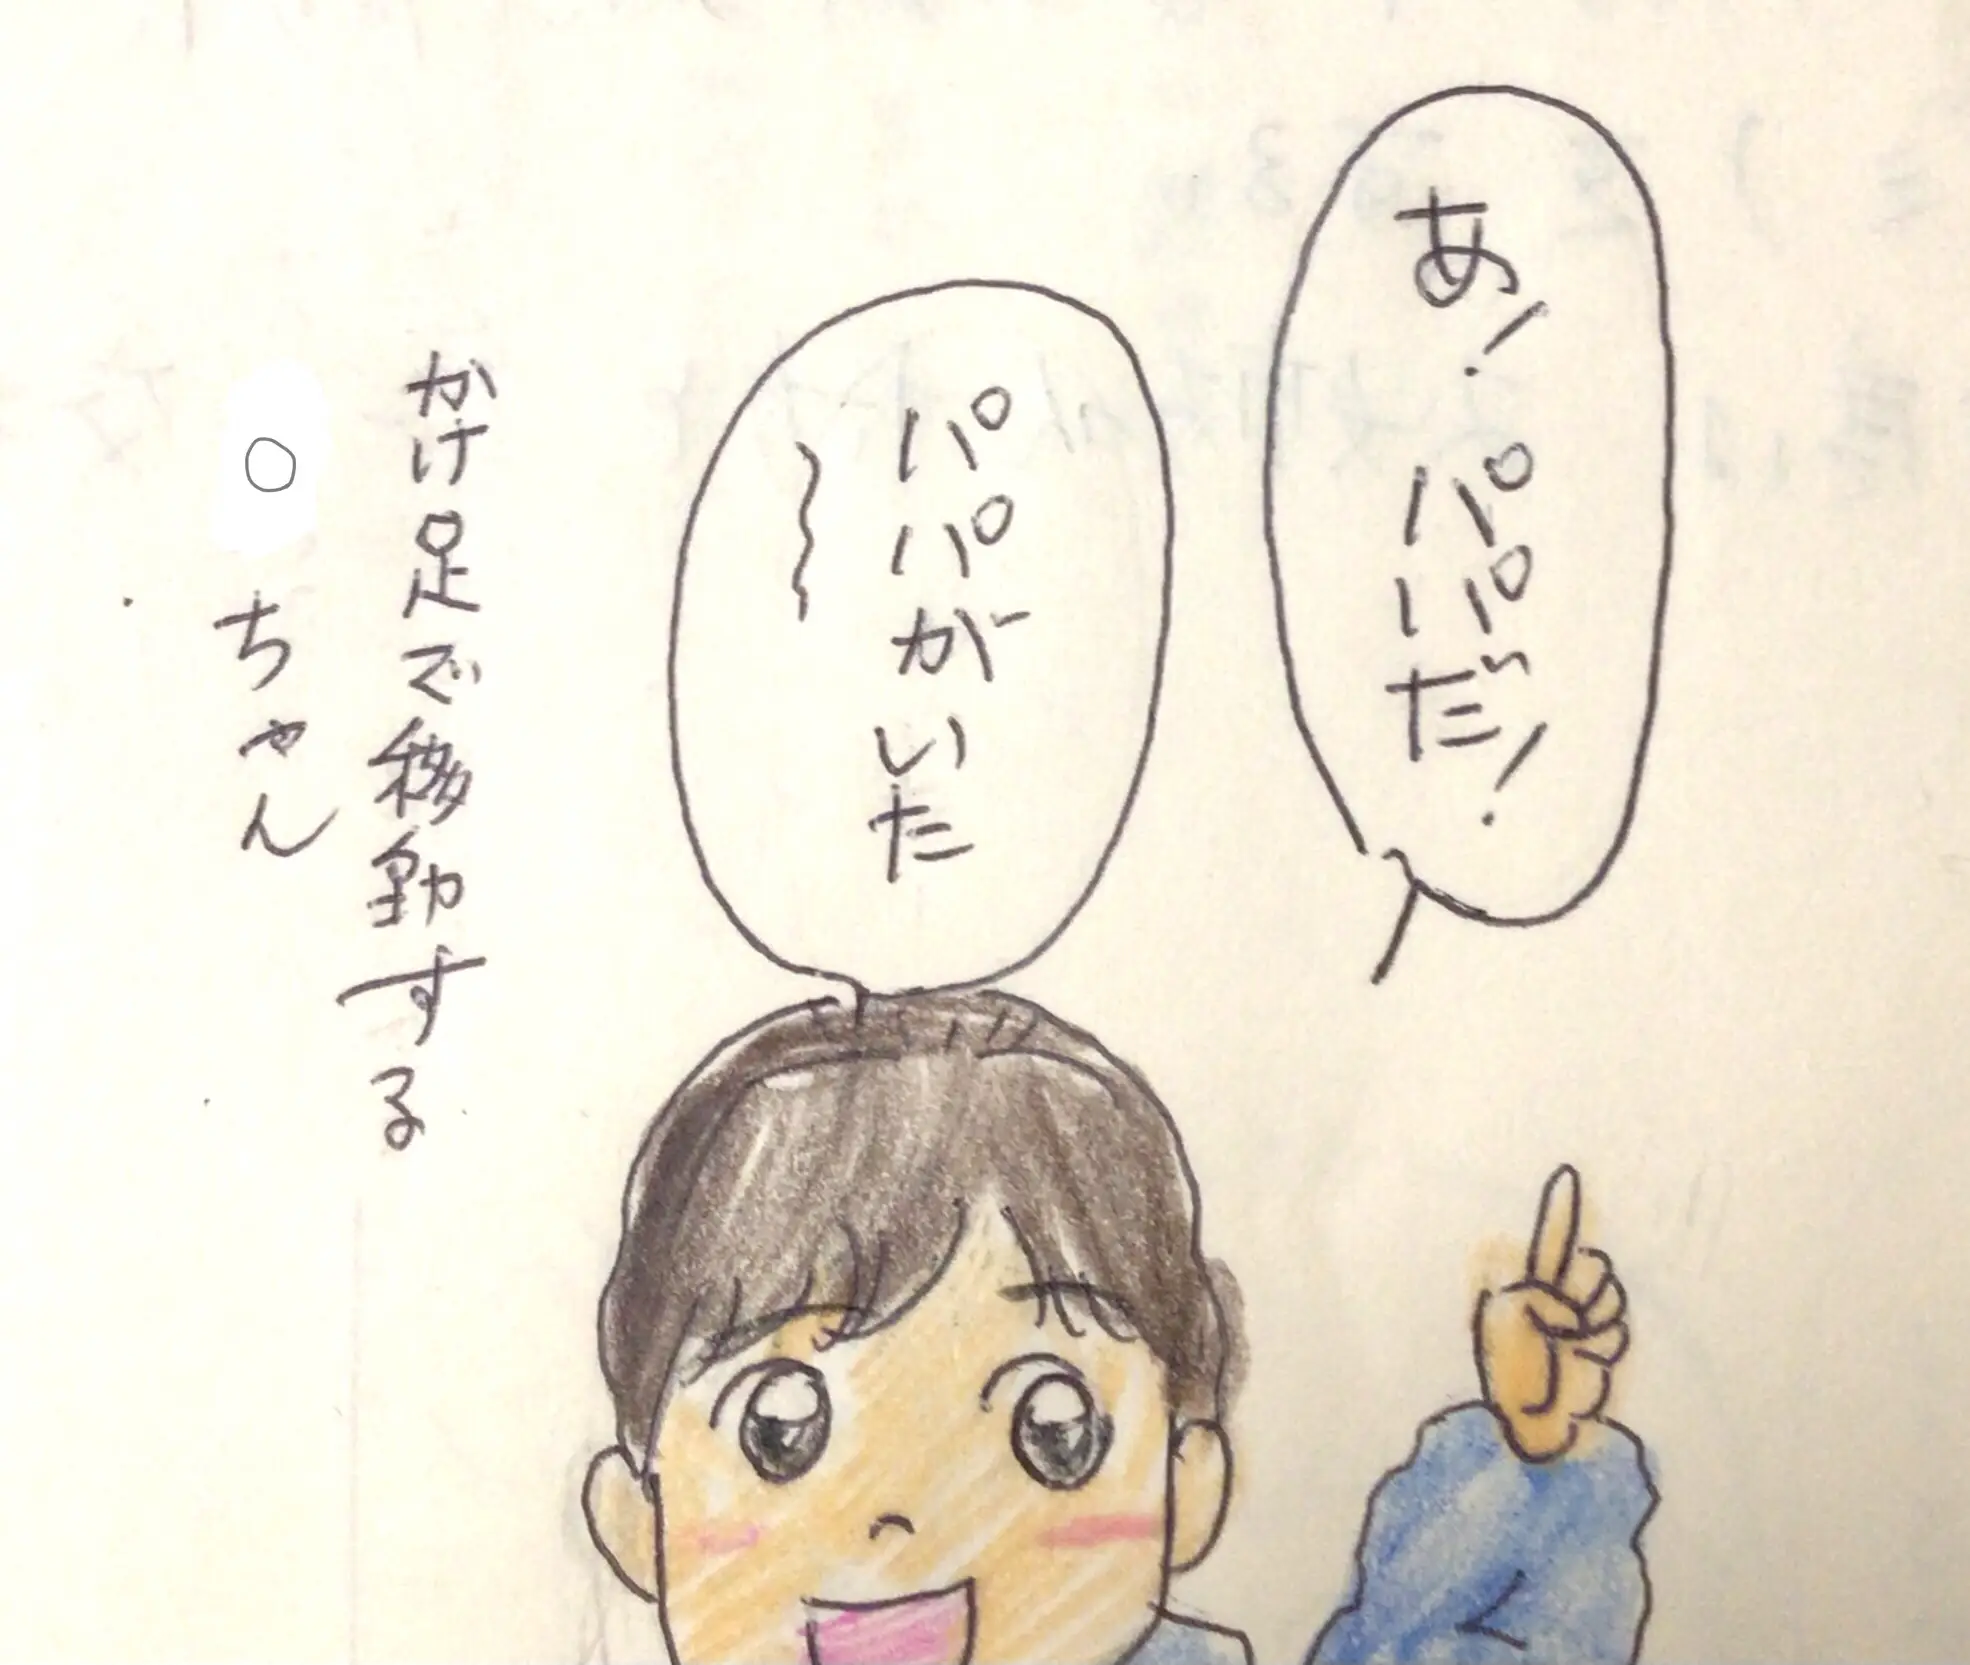 あ！パパだ！
パパがいた
〜
かけ足で移動する
○ちゃん